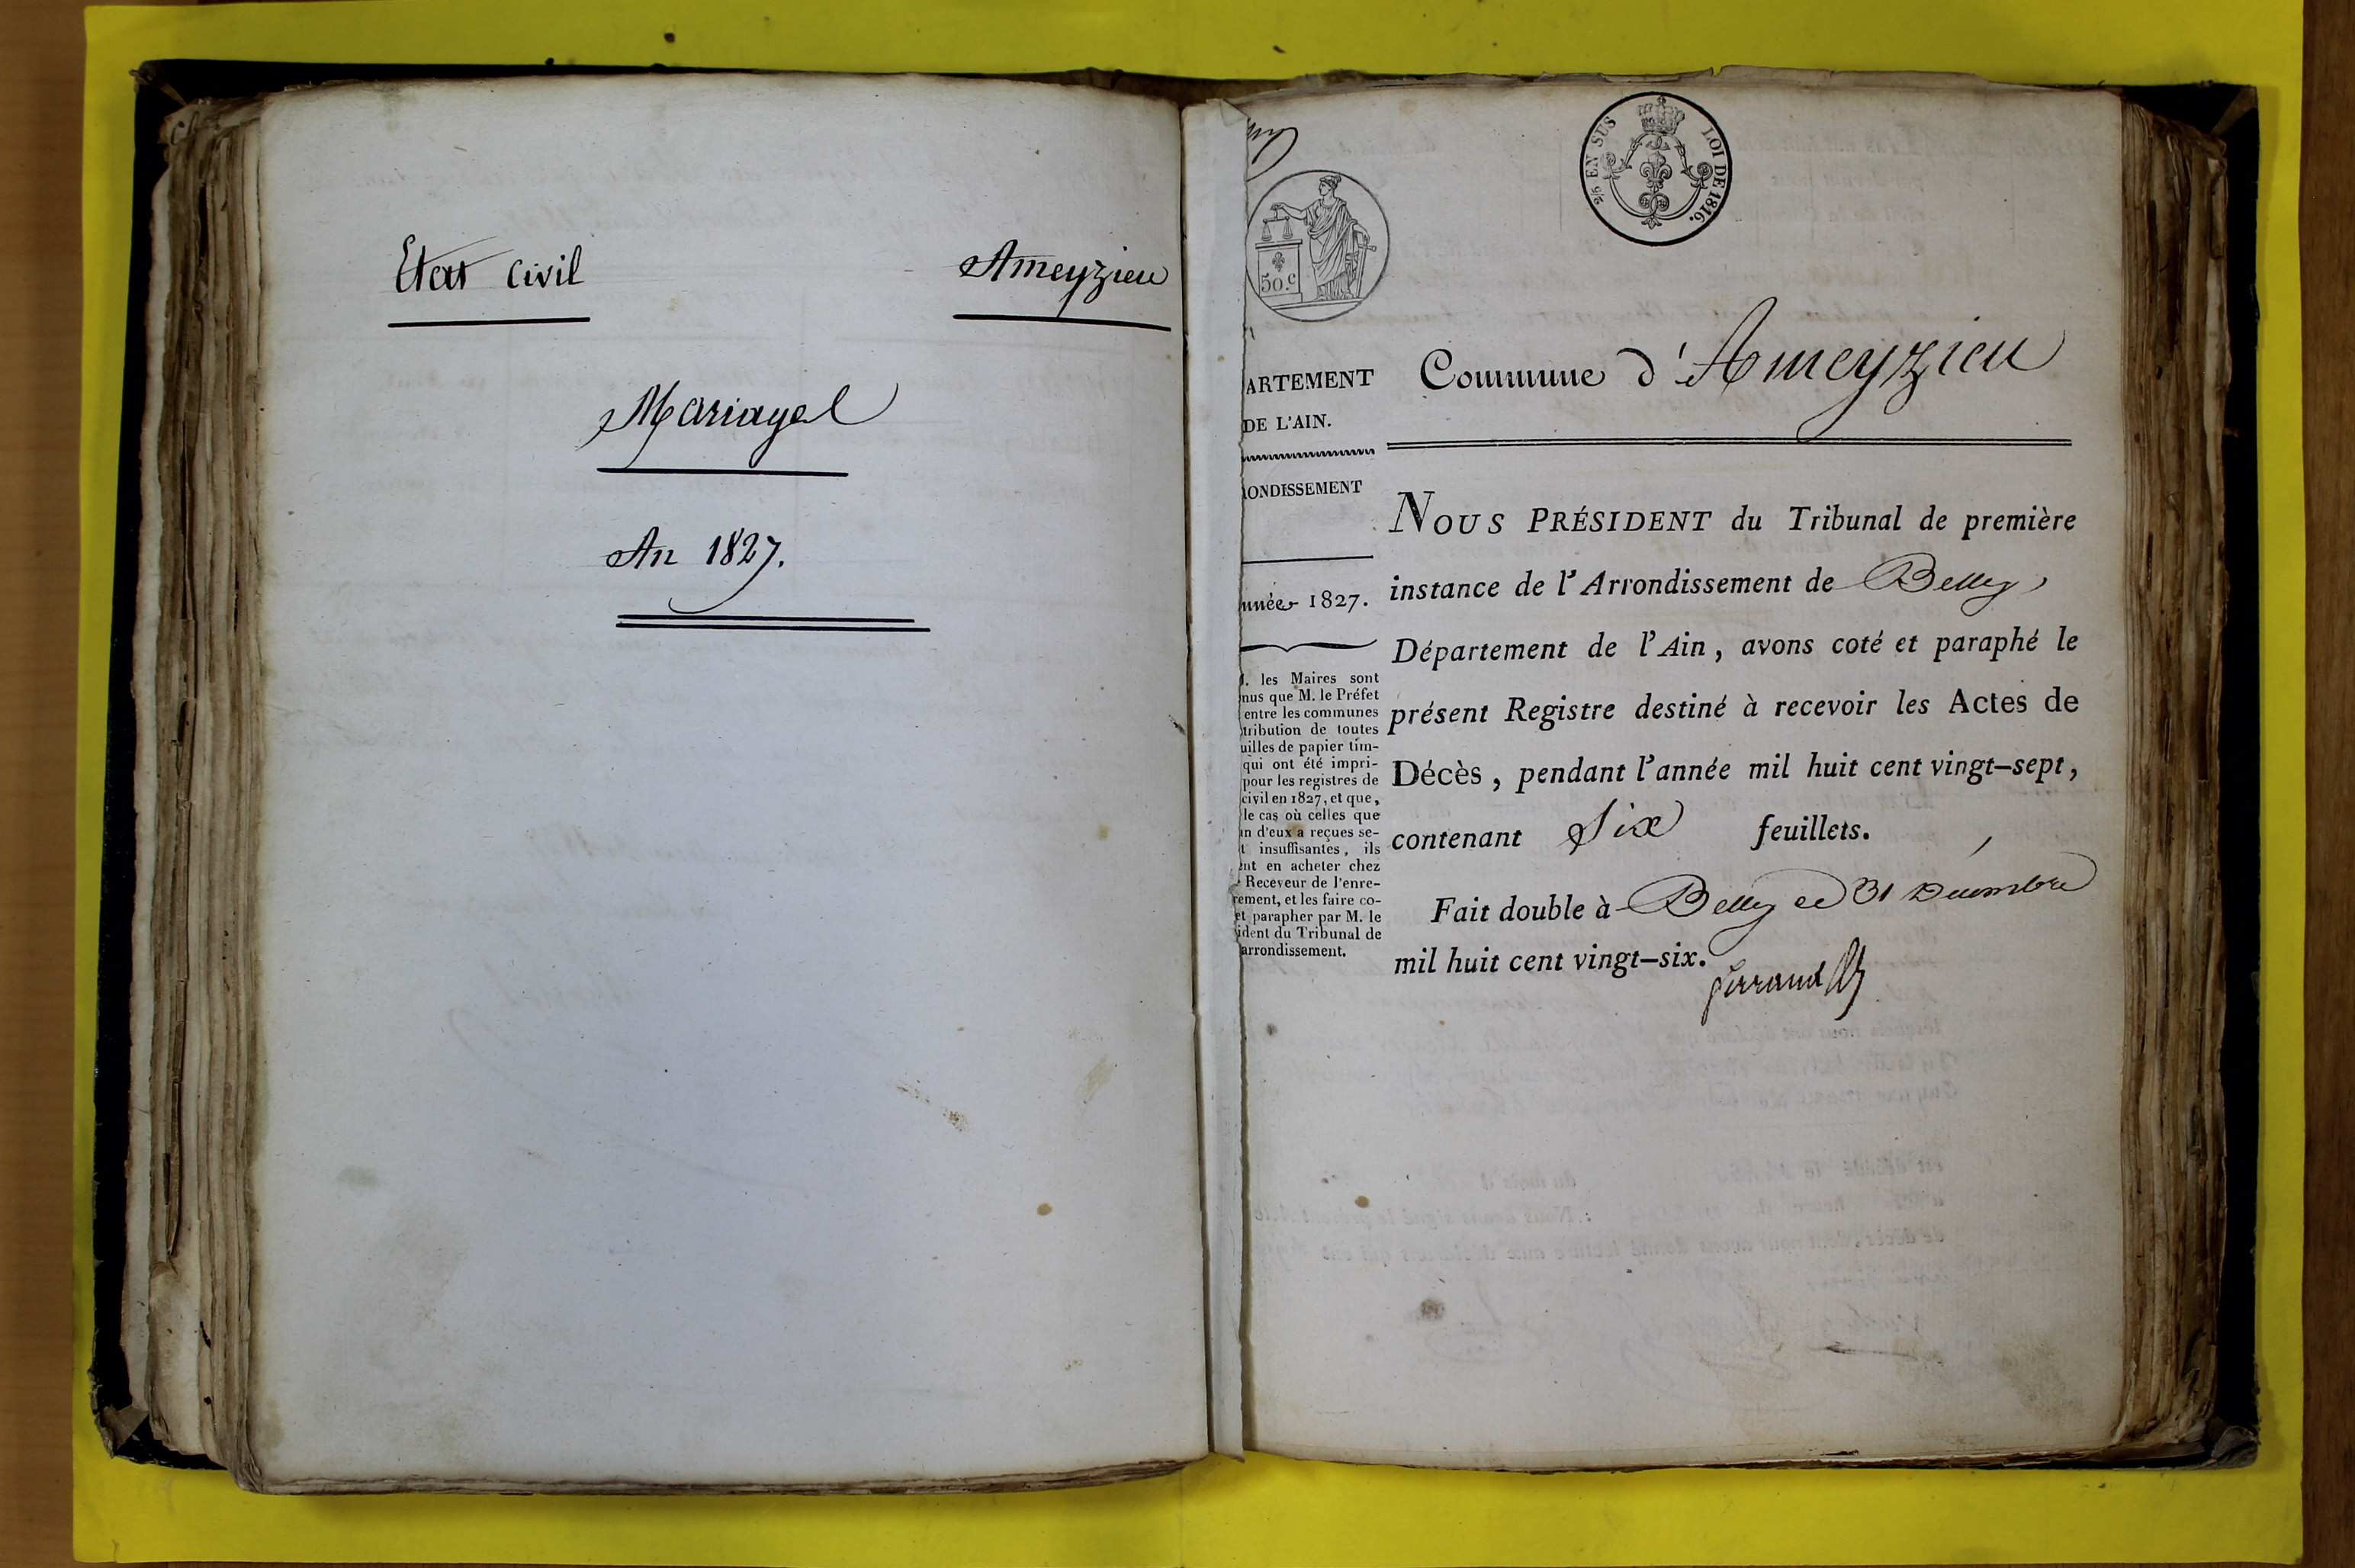 Etat civil
Ameyzieu
Mariages
An 1827.
2/5 EN SUS
LOI DE 1816.
50.c
ARTEMENT
DE L'AIN.
ONDISSEMENT
nnée 1827.
. les Maires sont
nus que M. le Préfet
entre les communes
tribution de toutes
uilles de papier tim-
qui ont été impri-
pour les registres de
civil en 1827, et que,
le cas où celles que
n d'eux a reçues se-
t insuffisantes, ils
ent en acheter chez
Receveur de l'enre-
rement, et les faire co-
et parapher par M. le
ident du Tribunal de
arrondissement.
Commune d'Ameyzieu
NOUS PRÉSIDENT du Tribunal de première
instance de l'Arrondissement de Belley
Département de l'Ain, avons coté et paraphé le
présent Registre destiné à recevoir les Actes de
Décès, pendant l'année mil huit cent vingt-sept,
contenant Six feuillets.
Fait double à Belley ce 31 Décembre
mil huit cent vingt-six.